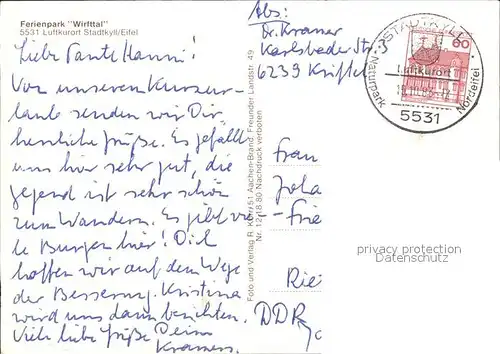 Ferienpark "Wirfttal"
5531 Luftkurort Stadtkyll/Eifel
Liebe Tante Hanni!
Von unserem Kurzur-
laube senden wir Dir
herzliche Grüße. Es gefällt
uns hier sehr gut, die
Gegend ist sehr schön
zum Wandern. Es gibt vie
le Burgen hier! Dich
hoffen wir auf dem Wege
der Besserung. Kristina
wird uns dann berichten.
Viele liebe Grüße Deine
Kramers.
Foto und Verlag R. Korr, 51 Aachen-Brand, Freunder Landstr. 49
Nr. 12/18 80 Nachdruck verboten
Abs:
Dr. Kramer
Karlsbader Str. 3
6239 Kriftel
STADTKYLL
Luftkurort
Naturpark
Nordeifel
5531
60
Frau
Jola
-Frie
Rie
DDR
privacy protection
Datenschutz